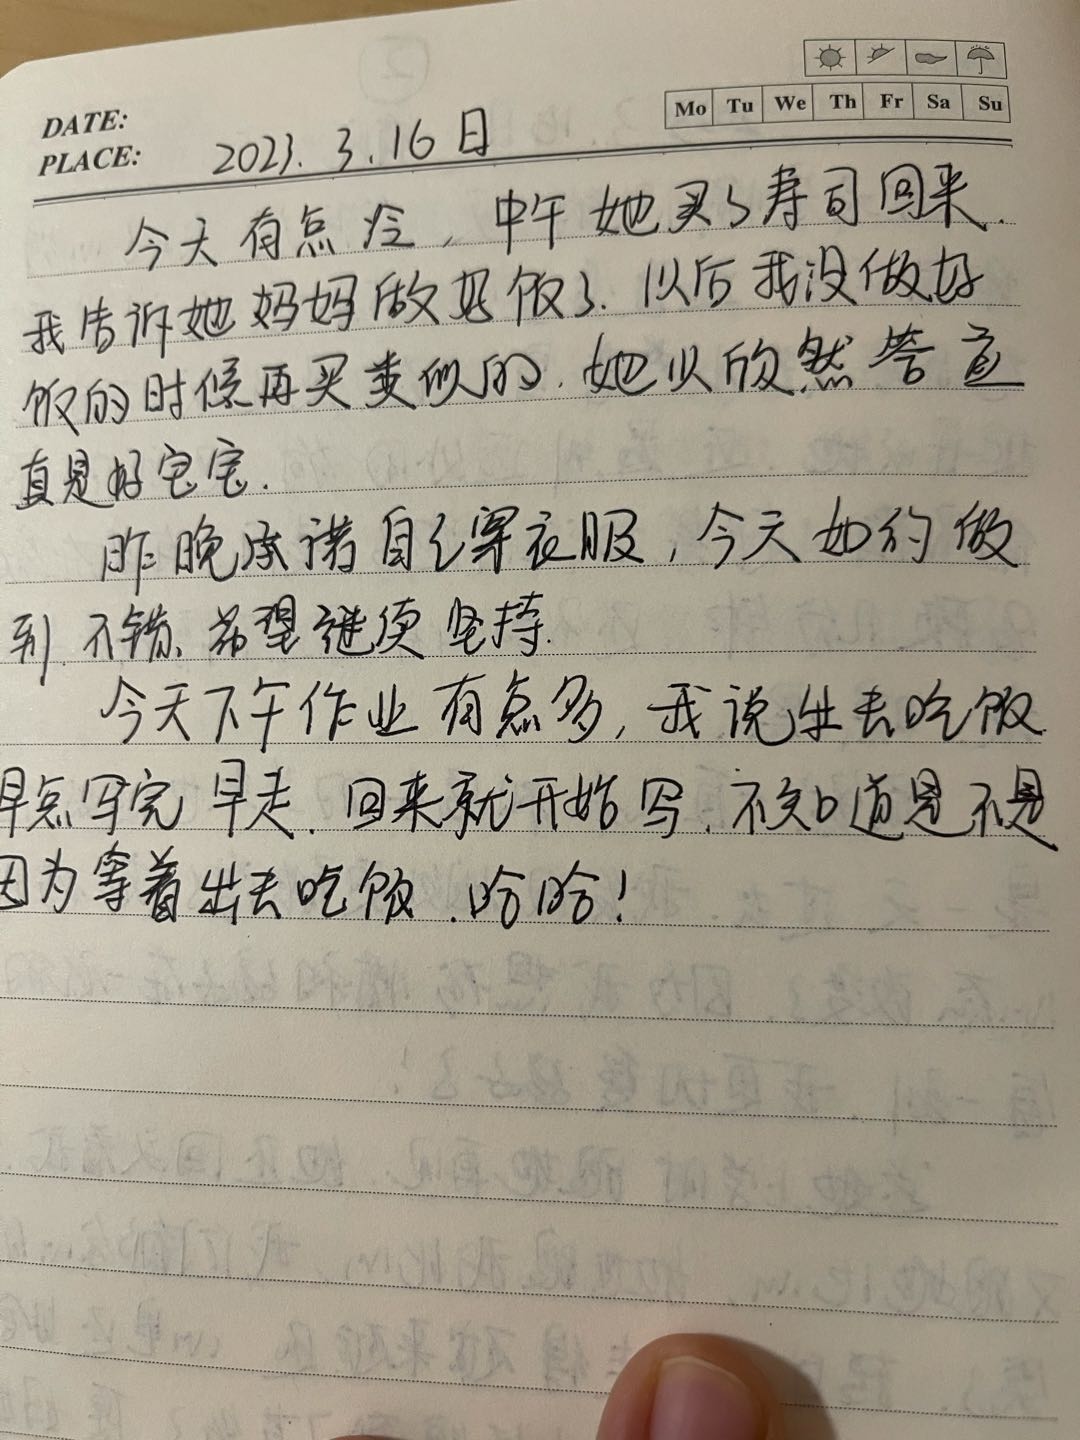 DATE:
Mo Tu We Th Fr Sa Su
PLACE: 2023.3.16日
今天有点冷，中午她买了寿司回来.
我告诉她妈妈做好饭了.以后我没做好
饭的时候再买类似的.她以欣然答应
真是好宝宝.
昨晚承诺自己穿衣服，今天如约做
到.不错、希望继续坚持.
今天下午作业有点多，我说出去吃饭
早点写完早走.回来就开始写.不知道是不是
因为等着出去吃饭.哈哈！